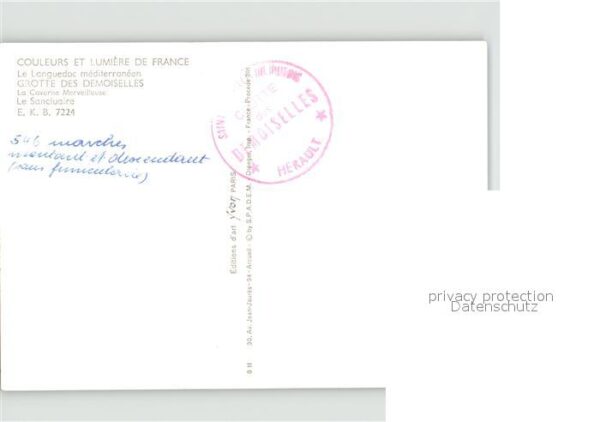 COULEURS ET LUMIÈRE DE FRANCE
Le Languedoc méditerranéen
GROTTE DES DEMOISELLES
La Caverne Merveilleuse
Le Sanctuaire
E. K. B. 7224
marches
montant et descendant
(sans funiculaire)
SAINT
GROTTE
DES
DEMOISELLES
HÉRAULT
Editions d'art Yvon PARIS
30, Av. Jean-Jaurès-94 - Arcueil - © by S.P.A.D.E.M.
privacy protection
Datenschutz